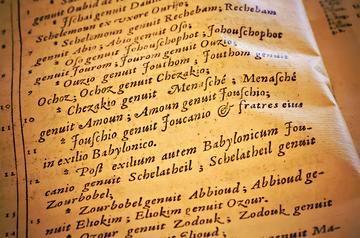 genuit Oubid de
Jſchai genuit
Schelemoun ex uxore Ourijo;
7 ª Schelomoun genuit Rechebam; Rechebam
genuit Abio; Abio genuit Oſo;
8 ª Oſo genuit Jouſchophot; Jouhouſchophot
genuit Jouram; Jouram genuit Ouzio;
9 ª Ouzio genuit Jouthom; Jouthom genuit
Ochoz; Ochoz genuit Chezakio;
10 ª Chezakio genuit Menaſché; Menaſché
genuit Amoun; Amoun genuit Jouſchio;
11 ª Jouſchio genuit Joucanio & fratres eius
in exilio Babylonico.
12 ª Poſt exilium autem Babylonicum Jou-
canio genuit Schelatheil; Schelatheil genuit
Zourbobel;
13 ª Zourbobel genuit Abbioud; Abbioud ge-
nuit Eliokim; Eliokim genuit Ozour.
Ozour genuit Zodouk; Zodouk genuit
genuit Elioud; genuit Ma-